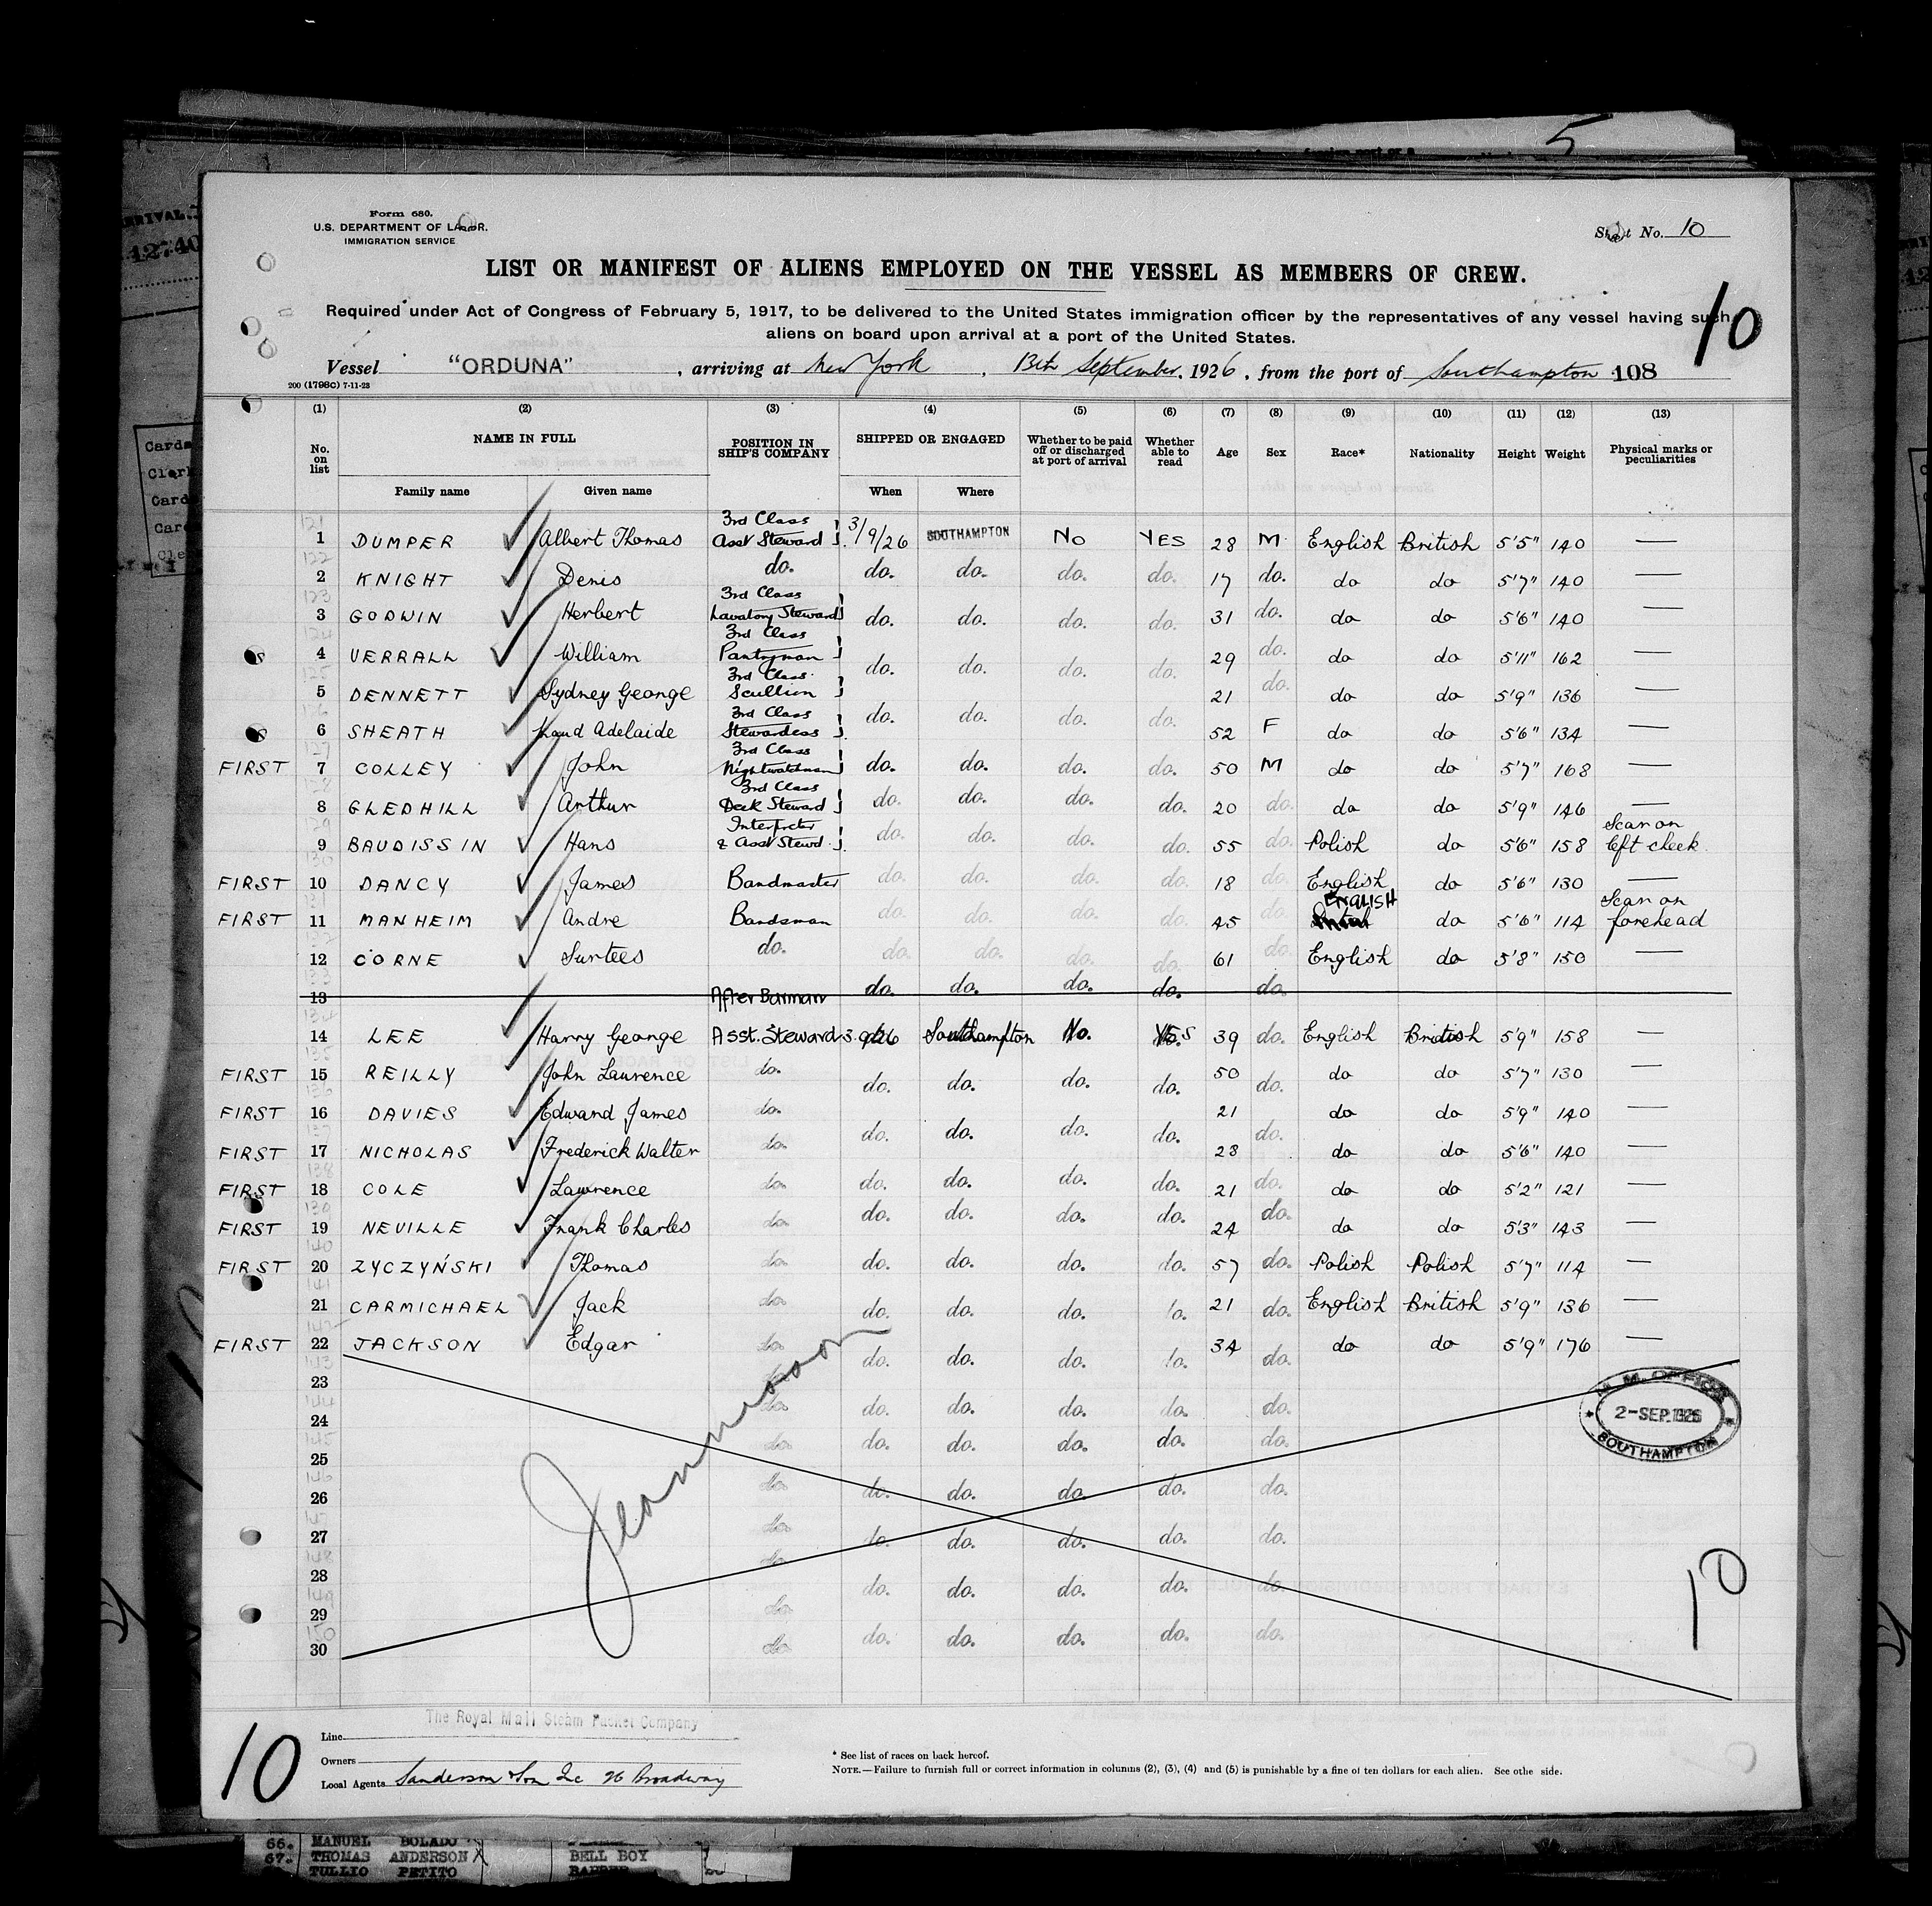 5
Form 680.
U.S. DEPARTMENT OF LABOR.
IMMIGRATION SERVICE
Sheet No. 10
LIST OR MANIFEST OF ALIENS EMPLOYED ON THE VESSEL AS MEMBERS OF CREW.
10
Required under Act of Congress of February 5, 1917, to be delivered to the United States immigration officer by the representatives of any vessel having such
aliens on board upon arrival at a port of the United States.
Vessel "ORDUNA", arriving at New York, 13th September, 1926, from the port of Southampton 108
200 (1798C) 7-11-23
(1) (2) (3) (4) (5) (6) (7) (8) (9) (10) (11) (12) (13)
No. on list NAME IN FULL POSITION IN SHIP'S COMPANY SHIPPED OR ENGAGED Whether to be paid off or discharged at port of arrival Whether able to read Age Sex Race* Nationality Height Weight Physical marks or peculiarities
Family name Given name When Where
1 DUMPER Albert Thomas 3rd Class Asst Steward 3/9/26 SOUTHAMPTON No YES 28 M English British 5'5" 140 —
2 KNIGHT Denis do. do. do. do. do. 17 do. do do 5'7" 140 —
3 GODWIN Herbert 3rd Class Lavatory Steward do. do. do. do. 31 do. do do 5'6" 140 —
4 VERRALL William 3rd Class Pantryman do. do. do. do. 29 do. do do 5'11" 162 —
5 DENNETT Sydney George 3rd Class Scullion 21 do. do do 5'9" 136 —
6 SHEATH Maud Adelaide 3rd Class Stewardess do. do. do. do. 52 F do do 5'6" 134 —
FIRST 7 COLLEY John 3rd Class Nightwatchman do. do. do. do. 50 M do do 5'7" 168 —
8 GLEDHILL Arthur 3rd Class Deck Steward do. do. do. do. 20 do. do do 5'9" 146 —
9 BAUDISSIN Hans Interpreter & Asst Stewd. do. do. do. do. 55 do. Polish do 5'6" 158 Scar on left cheek
FIRST 10 DANCY James Bandmaster do. do. do. do. 18 do. English do 5'6" 130 —
FIRST 11 MANHEIM Andre Bandsman do. do. do. do. 45 do. ENGLISH do 5'6" 114 Scar on forehead
12 CORNE Surtees do. do. do. do. do. 61 do. English do 5'8" 150 —
13 After Barman do. do. do. do. do.
14 LEE Harry George Asst. Steward 3.9.26 Southampton No. YES 39 do. English British 5'9" 158 —
FIRST 15 REILLY John Laurence do. do. do. do. do. 50 do. do do 5'7" 130 —
FIRST 16 DAVIES Edward James do. 21 do do 5'9" 140 —
FIRST 17 NICHOLAS Frederick Walter do. do. do. do. do. 28 do. do do 5'6" 140 —
FIRST 18 COLE Lawrence do. do. do. do. do. 21 do. do do 5'2" 121 —
FIRST 19 NEVILLE Frank Charles do. do. do. do. do. 24 do. do do 5'3" 143 —
FIRST 20 ZYCZYŃSKI Thomas do. do. do. do. do. 57 do. Polish Polish 5'7" 114 —
21 CARMICHAEL Jack do. do. do. do. do. 21 do. English British 5'9" 136 —
FIRST 22 JACKSON Edgar do. do. do. do. do. 34 do. do do 5'9" 176 —
23 do.
24 do. do. do. do. do. do.
25 do. do. do. do. do. do.
26 do. do. do. do. do. do.
27 do. do. do. do. do. do.
28 do. do. do. do. do. do.
29 do.
30 do. do. do. do. do. do.
M. M. OFFICE
2-SEP.1926
SOUTHAMPTON
10
10
Line The Royal Mail Steam Packet Company
Owners
Local Agents Sanderson & Son Inc 26 Broadway
* See list of races on back hereof.
NOTE.—Failure to furnish full or correct information in columns (2), (3), (4) and (5) is punishable by a fine of ten dollars for each alien. See othe side.
66. MANUEL BOLADO
67. THOMAS ANDERSON BELL BOY
TULLIO PETITO